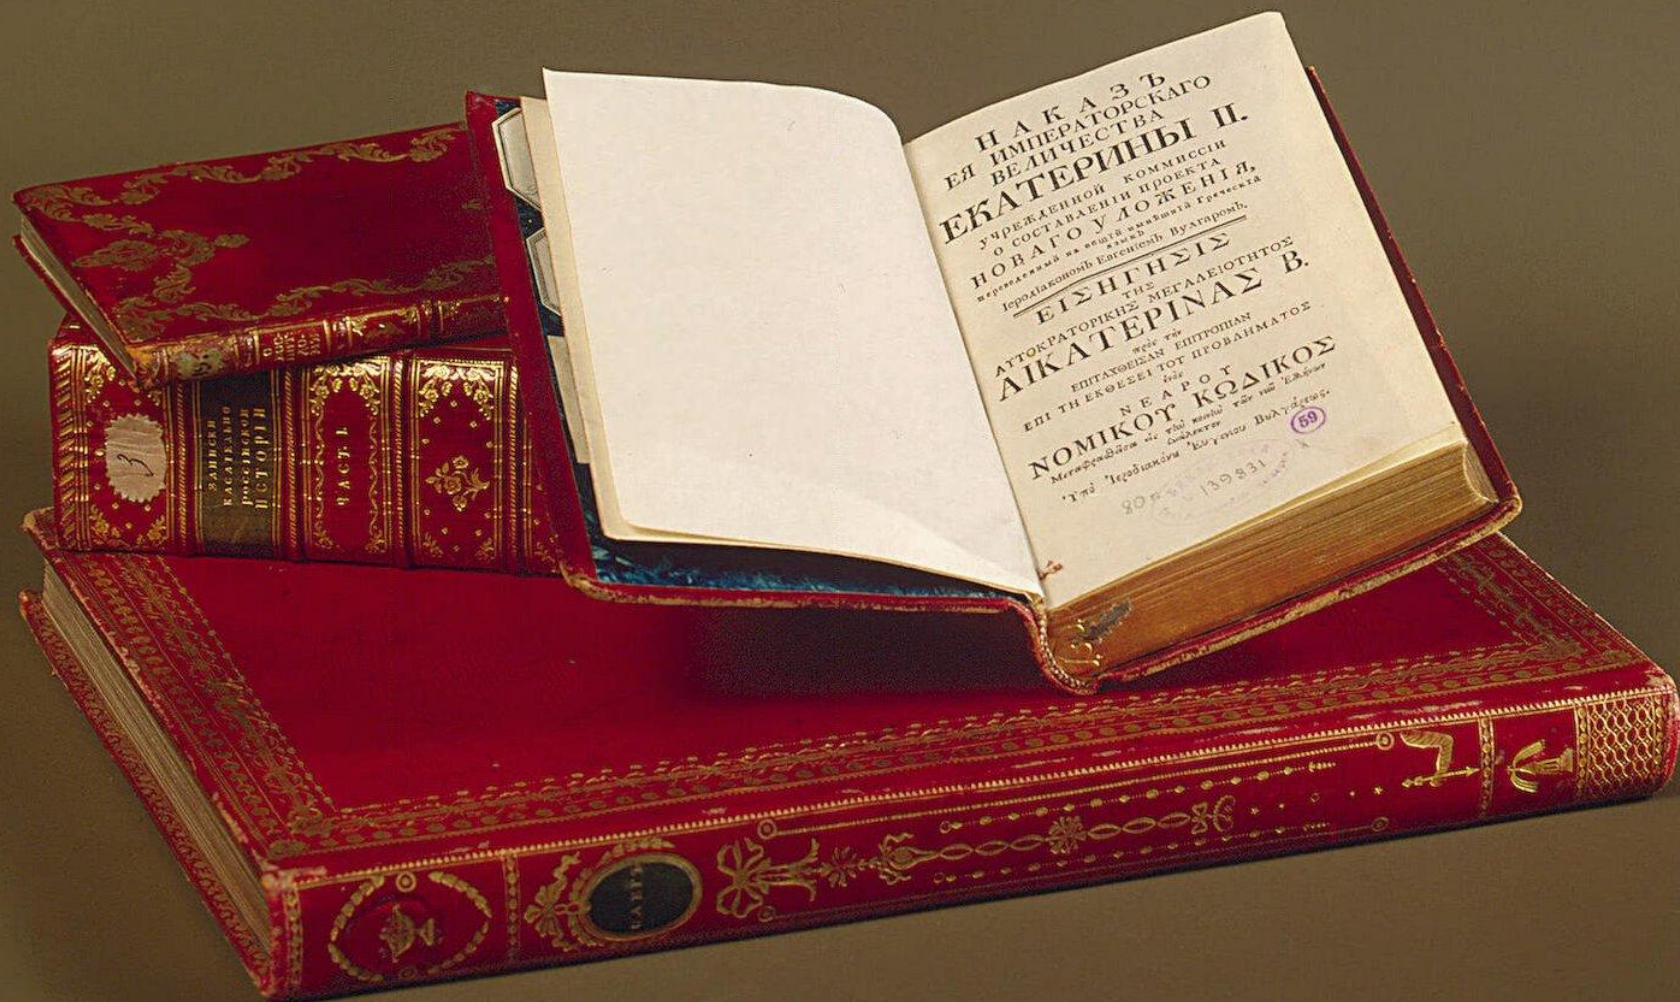 НАКАЗЪ
ЕЯ ИМПЕРАТОРСКАГО
ВЕЛИЧЕСТВА
ЕКАТЕРИНЫ II.
УЧРЕЖДЕННОЙ КОММИССІИ
О СОСТАВЛЕНІИ ПРОЕКТА
НОВАГО УЛОЖЕНІЯ,
переведенный на общій нынѣшній Греческій
языкъ
Іеродіакономъ Евгеніемъ Вулгаромъ.
ΕΙΣΗΓΗΣΙΣ
ΤΗΣ
ΑΥΤΟΚΡΑΤΟΡΙΚΗΣ ΜΕΓΑΛΕΙΟΤΗΤΟΣ
ΑΙΚΑΤΕΡΙΝΑΣ Β.
πρὸς τὴν
ΕΠΙΤΑΧΘΕΙΣΑΝ ΕΠΙΤΡΟΠΙΑΝ
ΕΠΙ ΤΗ ΕΚΘΕΣΕΙ ΤΟΥ ΠΡΟΒΛΗΜΑΤΟΣ
ἑνὸς
ΝΕΑΡΟΥ
ΝΟΜΙΚΟΥ ΚΩΔΙΚΟΣ
Μεταφρασθεῖσα εἰς τὴν κοινὴν τῶν νῦν Ἑλλήνων
διάλεκτον
Ὑπὸ Ἱεροδιακόνου Εὐγενίου Βουλγάρεως.
59
139831
3
ЗАПИСКИ
КАСАТЕЛЬНО
РОССІЙСКОЙ
ИСТОРІИ
ЧАСТ. I.